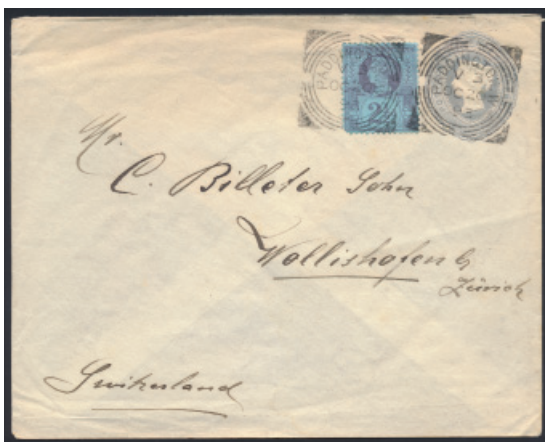 PADDINGTON PADDINGTON.W
OC 26
Mr.
C. Billeter Sohn
Wollishofen b
Zürich
Switzerland